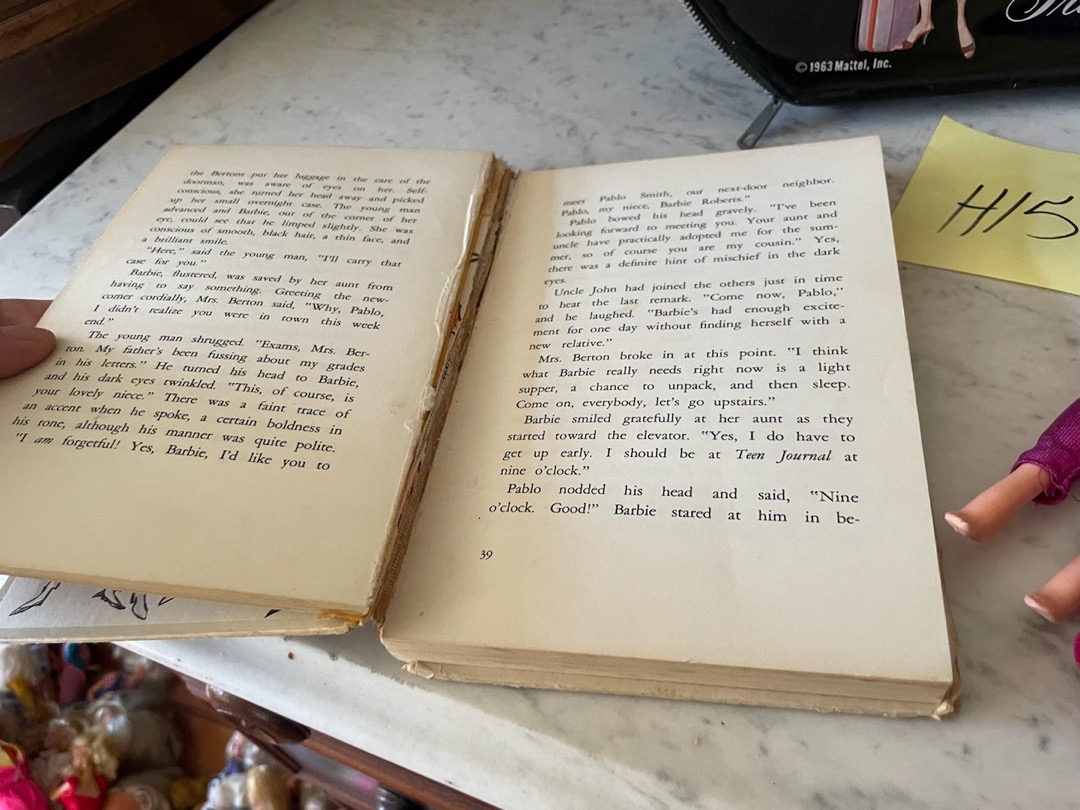 © 1963 Mattel, Inc.
H15
the Bertons put her luggage in the care of the
doorman, was aware of eyes on her. Self-
conscious, she turned her head away and picked
up her small overnight case. The young man
advanced and Barbie, out of the corner of her
eye, could see that he limped slightly. She was
conscious of smooth, black hair, a thin face, and
a brilliant smile.
"Here," said the young man, "I'll carry that
case for you."
Barbie, flustered, was saved by her aunt from
having to say something. Greeting the new-
comer cordially, Mrs. Berton said, "Why, Pablo,
I didn't realize you were in town this week
end."
The young man shrugged. "Exams, Mrs. Ber-
ton. My father's been fussing about my grades
in his letters." He turned his head to Barbie,
and his dark eyes twinkled. "This, of course, is
your lovely niece." There was a faint trace of
an accent when he spoke, a certain boldness in
his tone, although his manner was quite polite.
"I am forgetful! Yes, Barbie, I'd like you to
meet Pablo Smith, our next-door neighbor.
Pablo, my niece, Barbie Roberts."
Pablo bowed his head gravely. "I've been
looking forward to meeting you. Your aunt and
uncle have practically adopted me for the sum-
mer, so of course you are my cousin." Yes,
there was a definite hint of mischief in the dark
eyes.
Uncle John had joined the others just in time
to hear the last remark. "Come now, Pablo,"
and he laughed. "Barbie's had enough excite-
ment for one day without finding herself with a
new relative."
Mrs. Berton broke in at this point. "I think
what Barbie really needs right now is a light
supper, a chance to unpack, and then sleep.
Come on, everybody, let's go upstairs."
Barbie smiled gratefully at her aunt as they
started toward the elevator. "Yes, I do have to
get up early. I should be at Teen Journal at
nine o'clock."
Pablo nodded his head and said, "Nine
o'clock. Good!" Barbie stared at him in be-
39